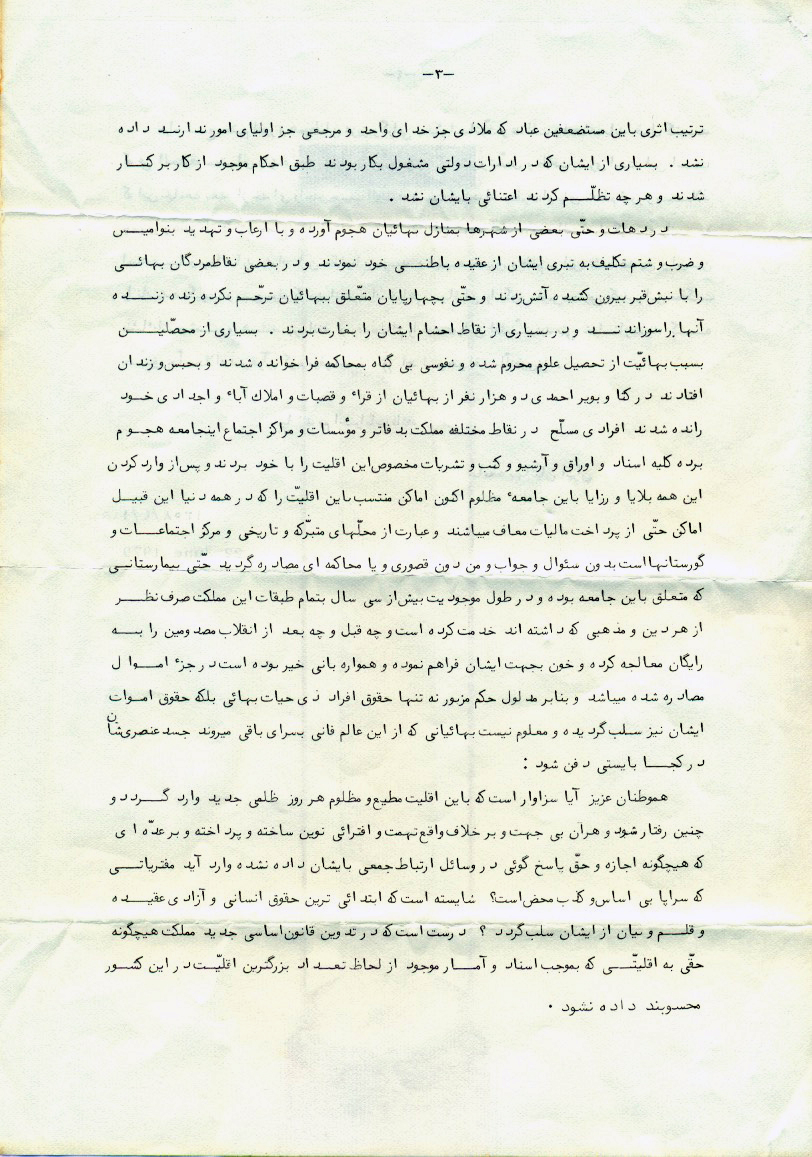 -۳-
ترتیب اثری باین مستضعفین عباد که ملاذی جز خدای واحد و مرجعی جز اولیای امور ندارند داده
نشد . بسیاری از ایشان که در ادارات دولتی مشغول بکار بودند طبق احکام موجود از کار بر کنار
شدند و هر چه تظلّم کردند اعتنائی بایشان نشد .
در دهات و حتّی بعضی از شهرها بمنازل بهائیان هجوم آورده و با ارعاب و تهدید بنوامیس
و ضرب و شتم تکلیف به تبری ایشان از عقیده باطنی خود نمودند و در بعضی نقاط مردگان بهائی
را با نبش قبر بیرون کشیده آتش زدند و حتّی بچهارپایان متّعلق ببهائیان ترحّم نکرده زنده زنده
آنها را سوزاندند و در بسیاری از نقاط احشام ایشان را بغارت بردند . بسیاری از محصّلین
بسبب بهائیّت از تحصیل علوم محروم شده و نفوسی بی گناه بمحاکمه فرا خوانده شدند و بحبس و زندان
افتادند در کتا و بویر احمدی دو هزار نفر از بهائیان از قراء و قصبات و املاك آباء و اجدادی خود
رانده شدند افرادی مسلّح در نقاط مختلفه مملکت بدفاتر و مؤسسات و مراکز اجتماع اینجامعه هجوم
برده کلیه اسناد و اوراق و آرشیو و کتب و نشریات مخصوص این اقلیت را با خود بردند و پس از وارد کردن
این همه بلایا و رزایا باین جامعه ٔ مظلوم اکنون اماکن منتسب باین اقلیّت را که در همه دنیا این قبیل
اماکن حتّی از پرداخت مالیات معاف میباشند و عبارت از محلّهای متبرّکه و تاریخی و مرکز اجتماعات و
گورستانها است بدون سئوال و جواب و من دون قصوری و یا محاکمه ای مصادره گردید حتّی بیمارستانی
که متعلق باین جامعه بوده و در طول موجودیت بیش از سی سال بتمام طبقات این مملکت صرف نظر
از هر دین و مذهبی که داشته اند خدمت کرده است و چه قبل و چه بعد از انقلاب مصدومین را به
رایگان معالجه کرده و خون بجهت ایشان فراهم نموده و همواره بانی خیر بوده است در جزء اموال
مصادره شده میباشد و بنابر مدلول حکم مزبور نه تنها حقوق افراد ذی حیات بهائی بلکه حقوق اموات
ایشان نیز سلب گردیده و معلوم نیست بهائیانی که از این عالم فانی بسرای باقی میروند جسد عنصری شان
در کجا بایستی دفن شود :
هموطنان عزیز آیا سزاوار است که باین اقلیت مطیع و مظلوم هر روز ظلمی جدید وارد گردد و
چنین رفتار شود و هرآن بی جهت و بر خلاف واقع تهمت و افترائی نوین ساخته و پرداخته و بر عدّه ای
که هیچگونه اجازه و حقّ پاسخ گوئی در وسائل ارتباط جمعی بایشان داده نشده وارد آید مفتریاتی
که سراپا بی اساس و کذب محض است؟ شایسته است که ابتدائی ترین حقوق انسانی و آزادی عقیده
و قلم و بیان از ایشان سلب گردد ؟ درست است که در تدوین قانون اساسی جدید مملکت هیچگونه
حقّی به اقلیتّی که بموجب اسناد و آمار موجود از لحاظ تعداد بزرگترین اقلیّت در این کشور
محسوبند داده نشود .